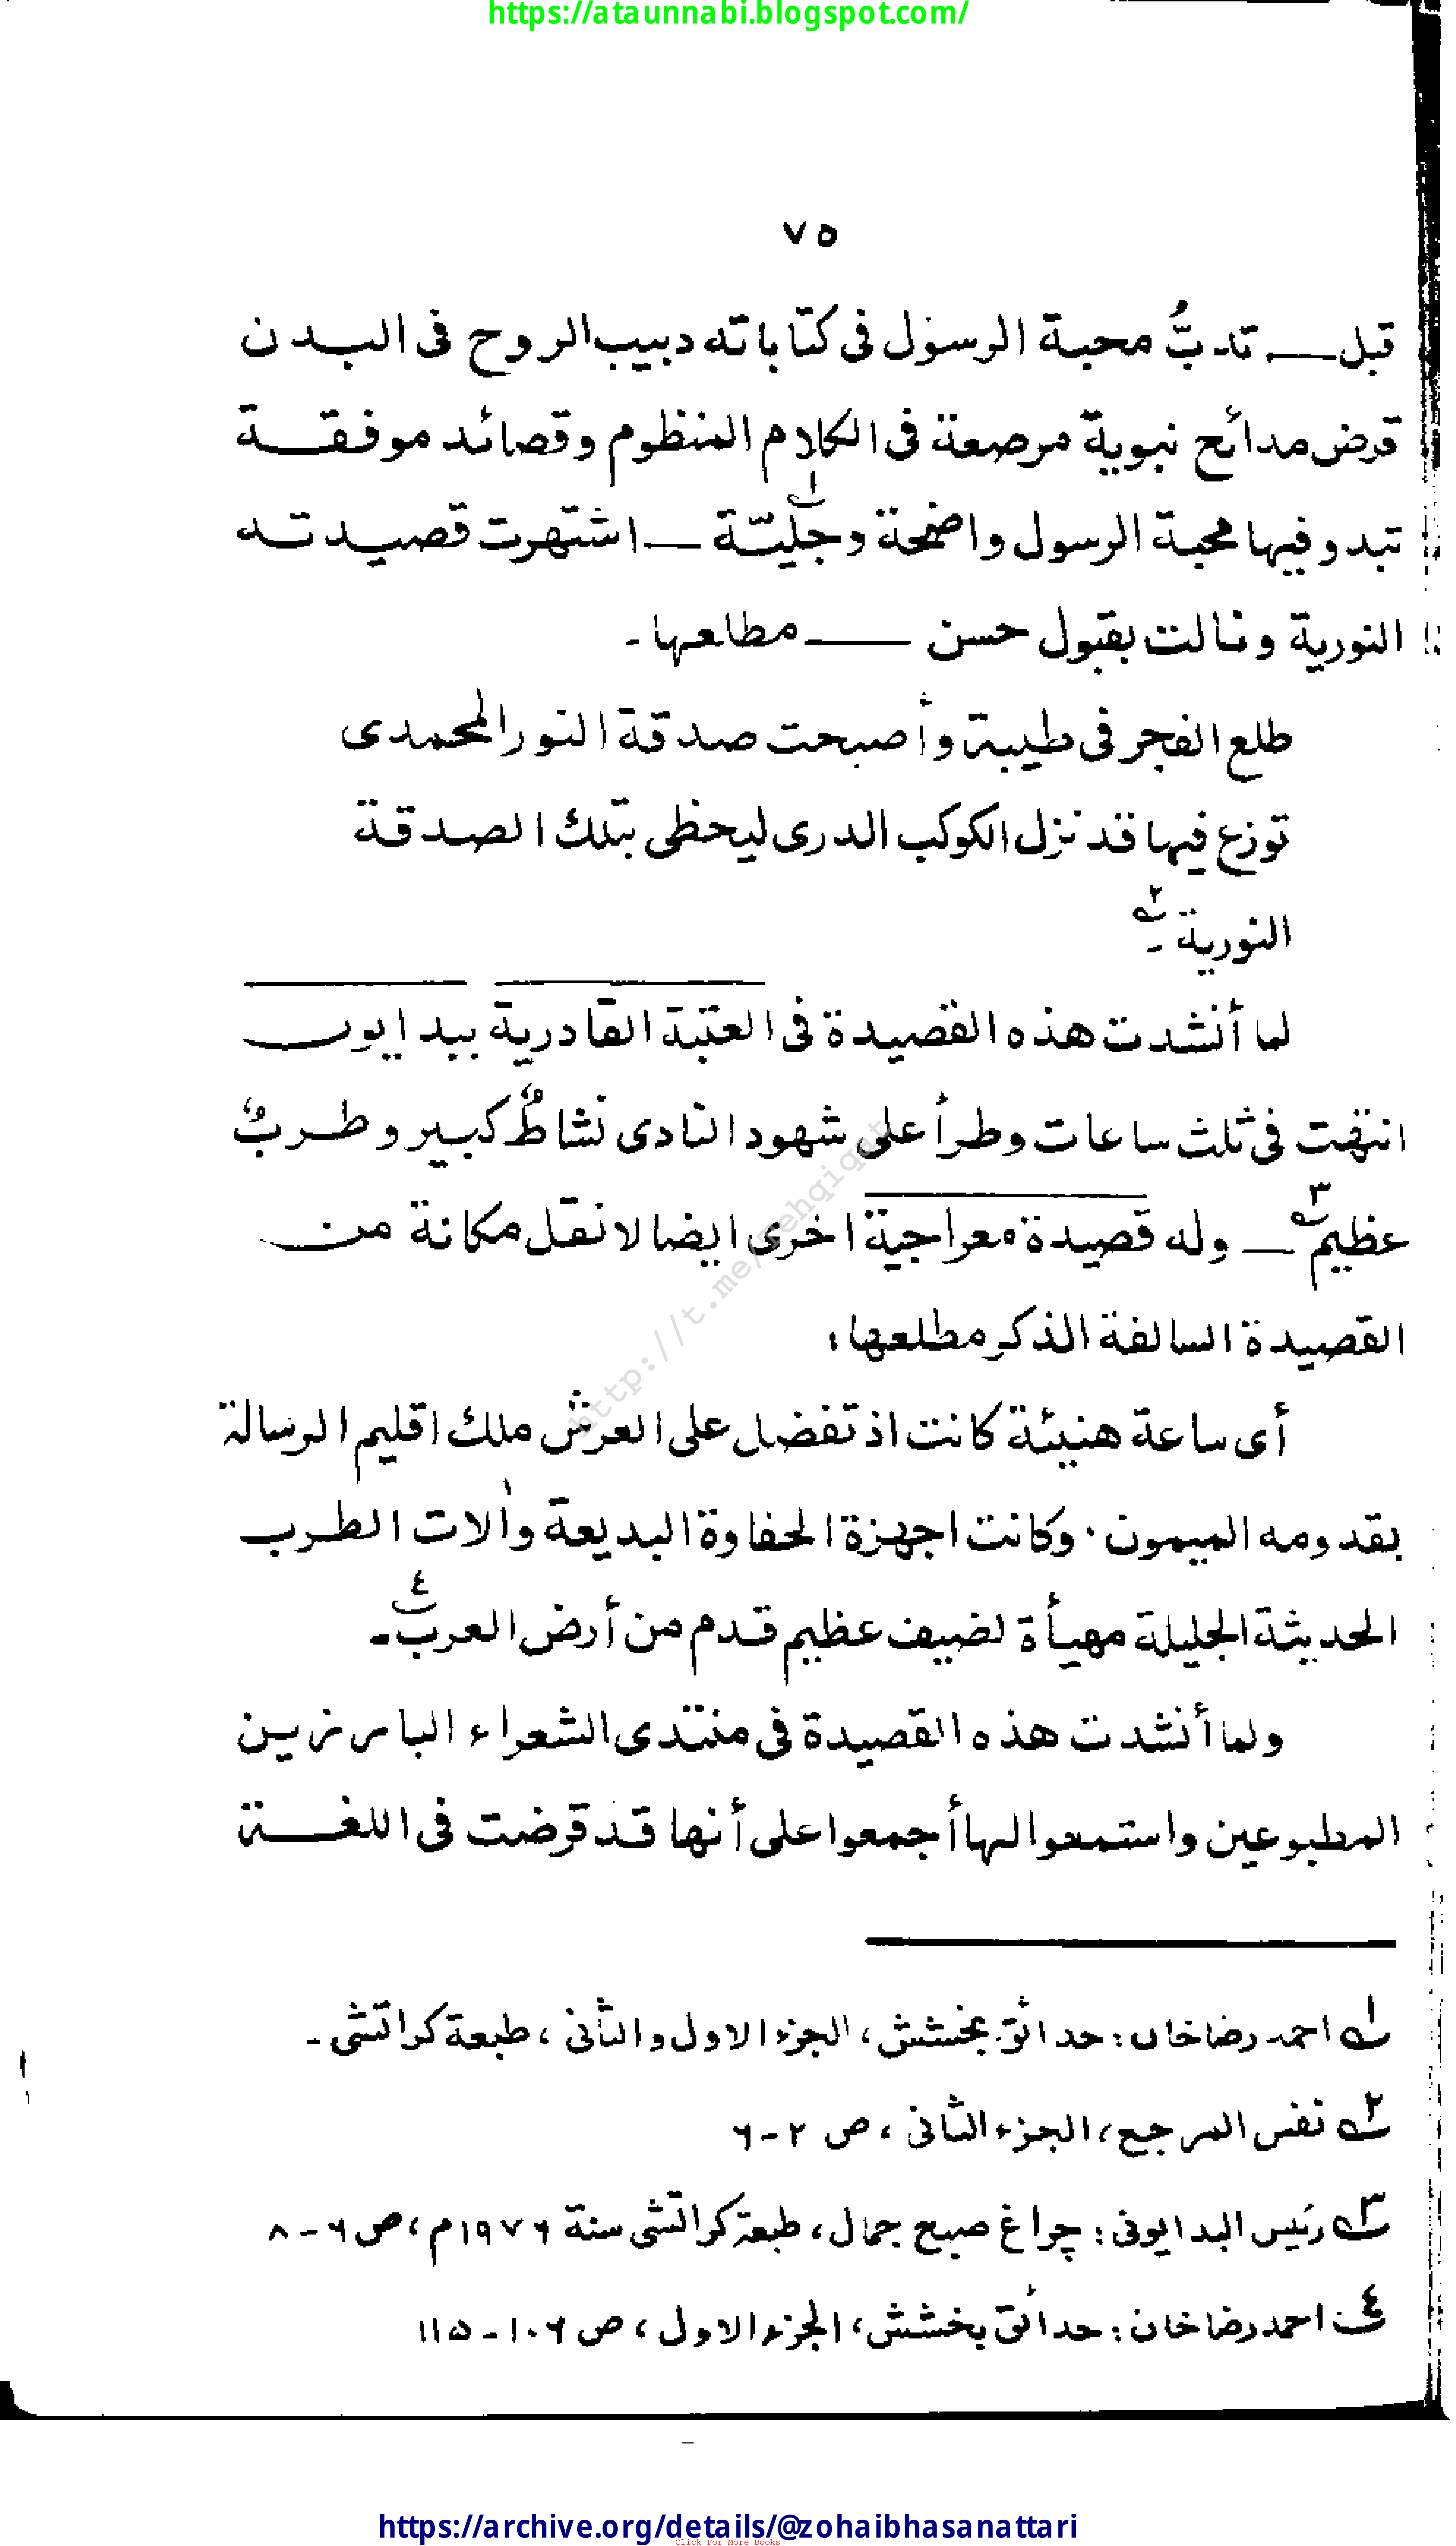 https://ataunnabi.blogspot.com/
٧٥
قبل — تدبُّ محبة الرسول فى كتاباته دبيب الروح فى البدن
قرض مدائح نبوية مرصعة فى الكلام المنظوم وقصائد موفقة
تبدو فيها محبة الرسول واضحة وجليّة ١ — اشتهرت قصيدته
النورية ونالت بقبول حسن — مطلعها ـ
طلع الفجر فى طيبة وأصبحت صدقة النور المحمدى
توزع فيها قد نزل الكوكب الدرى ليحظى بتلك الصدقة
النورية ٢ ـ
لما أنشدت هذه القصيدة فى العتبة القادرية ببدايون
انتهت فى ثلث ساعات وطرأ على شهود النادى نشاطٌ كبير وطربٌ
عظيم ٣ — وله قصيدة معراجية اخرى ايضا لا تقل مكانة من
القصيدة السالفة الذكر مطلعها:
أى ساعة هنيئة كانت اذ تفضل على العرش ملك اقليم الرسالة
بقدومه الميمون ٠ وكانت اجهزة الحفاوة البديعة وألات الطرب
الحديثة الجليلة مهيأة لضيف عظيم قدم من أرض العرب ٤ ـ
ولما أنشدت هذه القصيدة فى منتدى الشعراء البارزين
المطبوعين واستمعوا لها أجمعوا على أنها قد قرضت فى اللغة
١ احمد رضاخاں: حدائق بخشش، الجزء الاول والثانى، طبعة كراتشى ـ
٢ نفس المرجع، الجزء الثانى، ص ٢-٦
٣ رئيس البدايونى: چراغ صبح جمال، طبعة كراتشى سنة ١٩٧٦م، ص ٦-٨
٤ احمد رضا خان: حدائق بخشش، الجزء الاول، ص ١٠٦-١١٥
https://archive.org/details/@zohaibhasanattari
Click For More Books